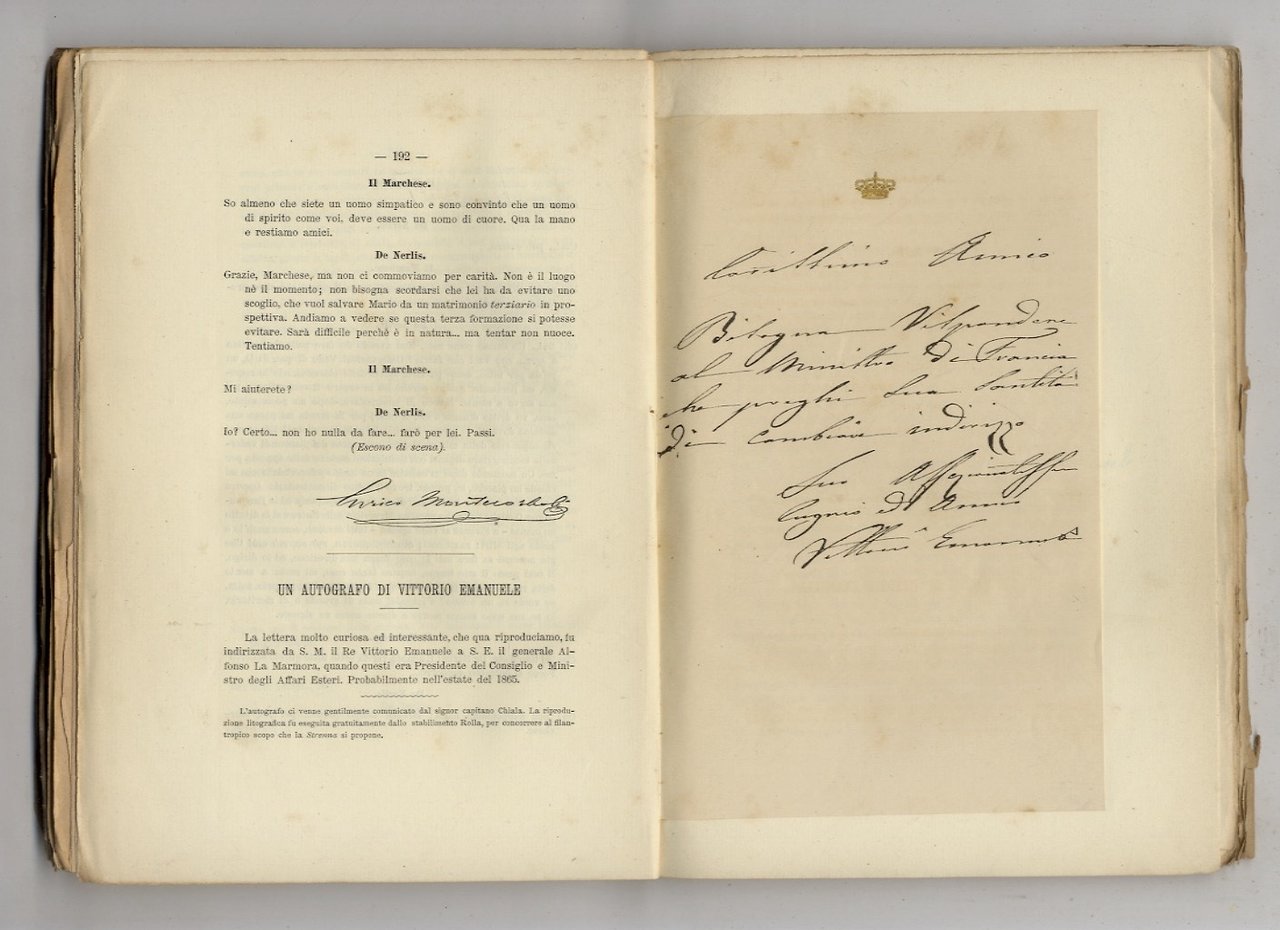 — 192 —
Il Marchese.
So almeno che siete un uomo simpatico e sono convinto che un uomo
di spirito come voi, deve essere un uomo di cuore. Qua la mano
e restiamo amici.
De Nerlis.
Grazie, Marchese, ma non ci commoviamo per carità. Non è il luogo
nè il momento; non bisogna scordarsi che lei ha da evitare uno
scoglio, che vuol salvare Mario da un matrimonio terziario in pro-
spettiva. Andiamo a vedere se questa terza formazione si potesse
evitare. Sarà difficile perchè è in natura... ma tentar non nuoce.
Tentiamo.
Il Marchese.
Mi aiuterete?
De Nerlis.
Io? Certo... non ho nulla da fare... farò per lei. Passi.
(Escono di scena).
Enrico Montecorboli
UN AUTOGRAFO DI VITTORIO EMANUELE
La lettera molto curiosa ed interessante, che qua riproduciamo, fu
indirizzata da S. M. il Re Vittorio Emanuele a S. E. il generale Al-
fonso La Marmora, quando questi era Presidente del Consiglio e Mini-
stro degli Affari Esteri. Probabilmente nell'estate del 1865.
L'autografo ci venne gentilmente comunicato dal signor capitano Chiala. La riprodu-
zione litografica fu eseguita gratuitamente dallo stabilimento Rolla, per concorrere al filan-
tropico scopo che la Strenna si propone.
Carissimo Amico
Bisogna Rispondere
al Ministro di Francia
che preghi Sua Santità
di cambiare indirizzo
Suo
Cugino ed Amico
Vittorio Emanuele